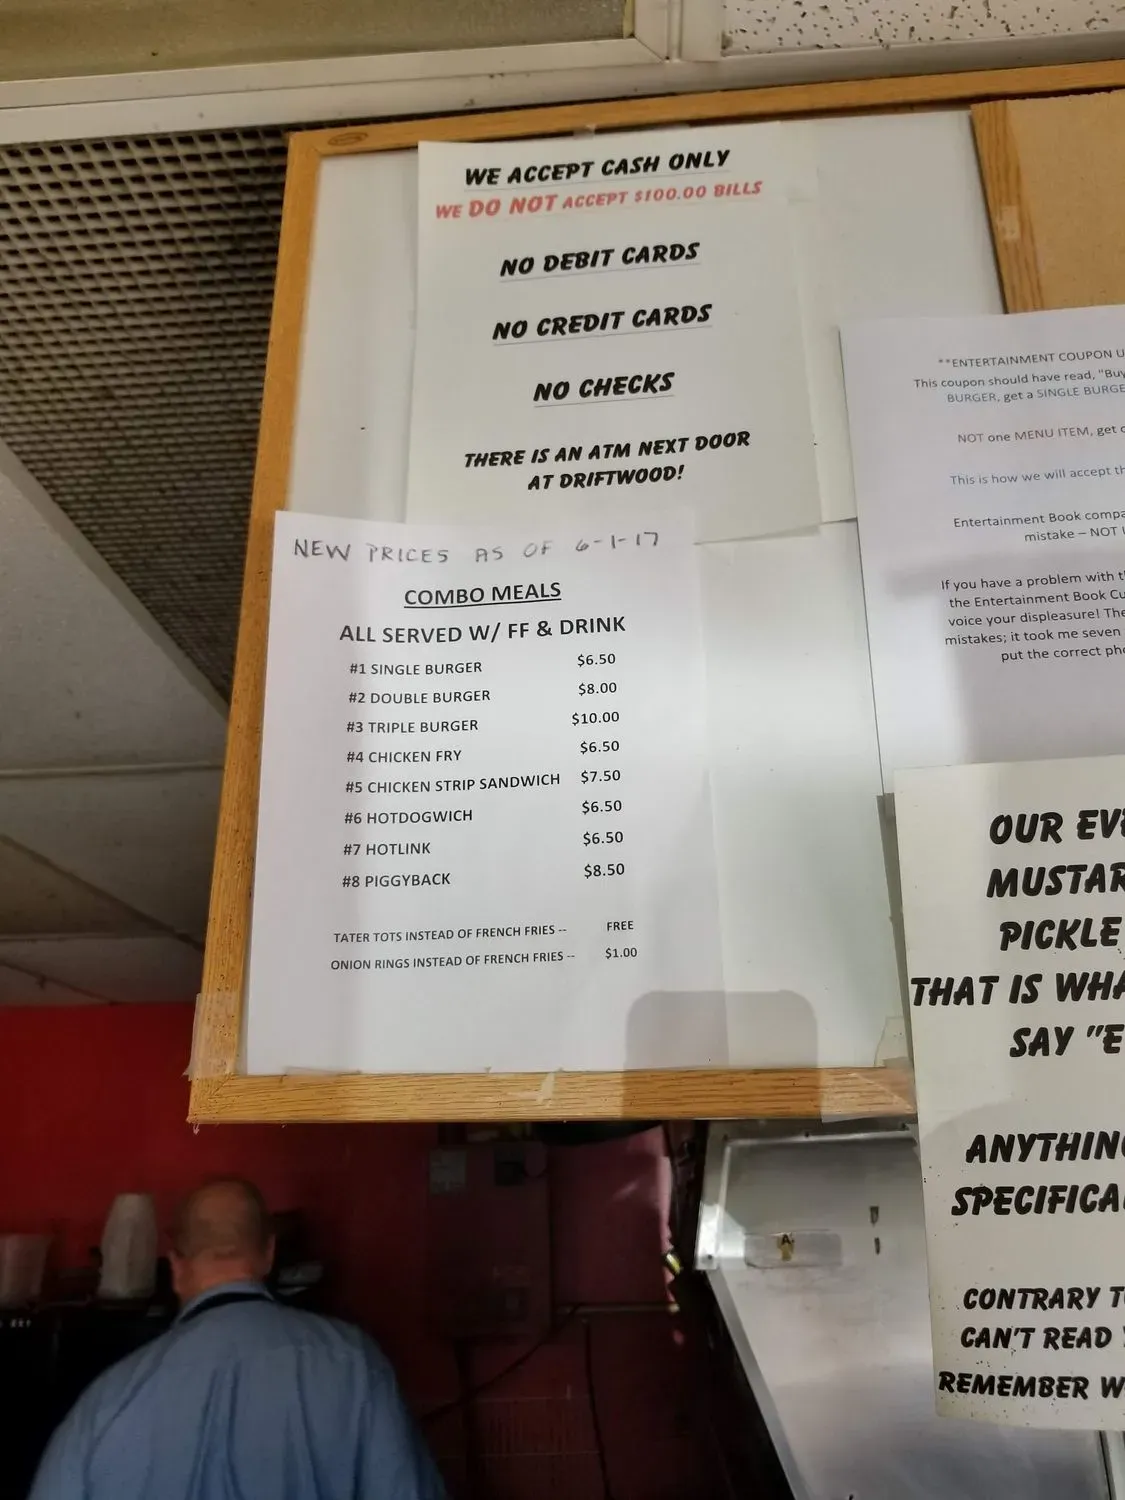 WE ACCEPT CASH ONLY
WE DO NOT ACCEPT $100.00 BILLS
NO DEBIT CARDS
NO CREDIT CARDS
NO CHECKS
THERE IS AN ATM NEXT DOOR
AT DRIFTWOOD!
NEW PRICES AS OF 6-1-17
COMBO MEALS
ALL SERVED W/ FF & DRINK
#1 SINGLE BURGER $6.50
#2 DOUBLE BURGER $8.00
#3 TRIPLE BURGER $10.00
#4 CHICKEN FRY $6.50
#5 CHICKEN STRIP SANDWICH $7.50
#6 HOTDOGWICH $6.50
#7 HOTLINK $6.50
#8 PIGGYBACK $8.50
TATER TOTS INSTEAD OF FRENCH FRIES -- FREE
ONION RINGS INSTEAD OF FRENCH FRIES -- $1.00
**ENTERTAINMENT COUPON
This coupon should have read, "Buy
BURGER, get a SINGLE
NOT one MENU ITEM, get
This is how we will accept
Entertainment Book
mistake – NOT
If you have a problem with
the Entertainment Book
voice your displeasure!
mistakes; it took me seven
put the correct
OUR
PICKLE
THAT IS
SAY
CONTRARY
CAN'T READ
REMEMBER